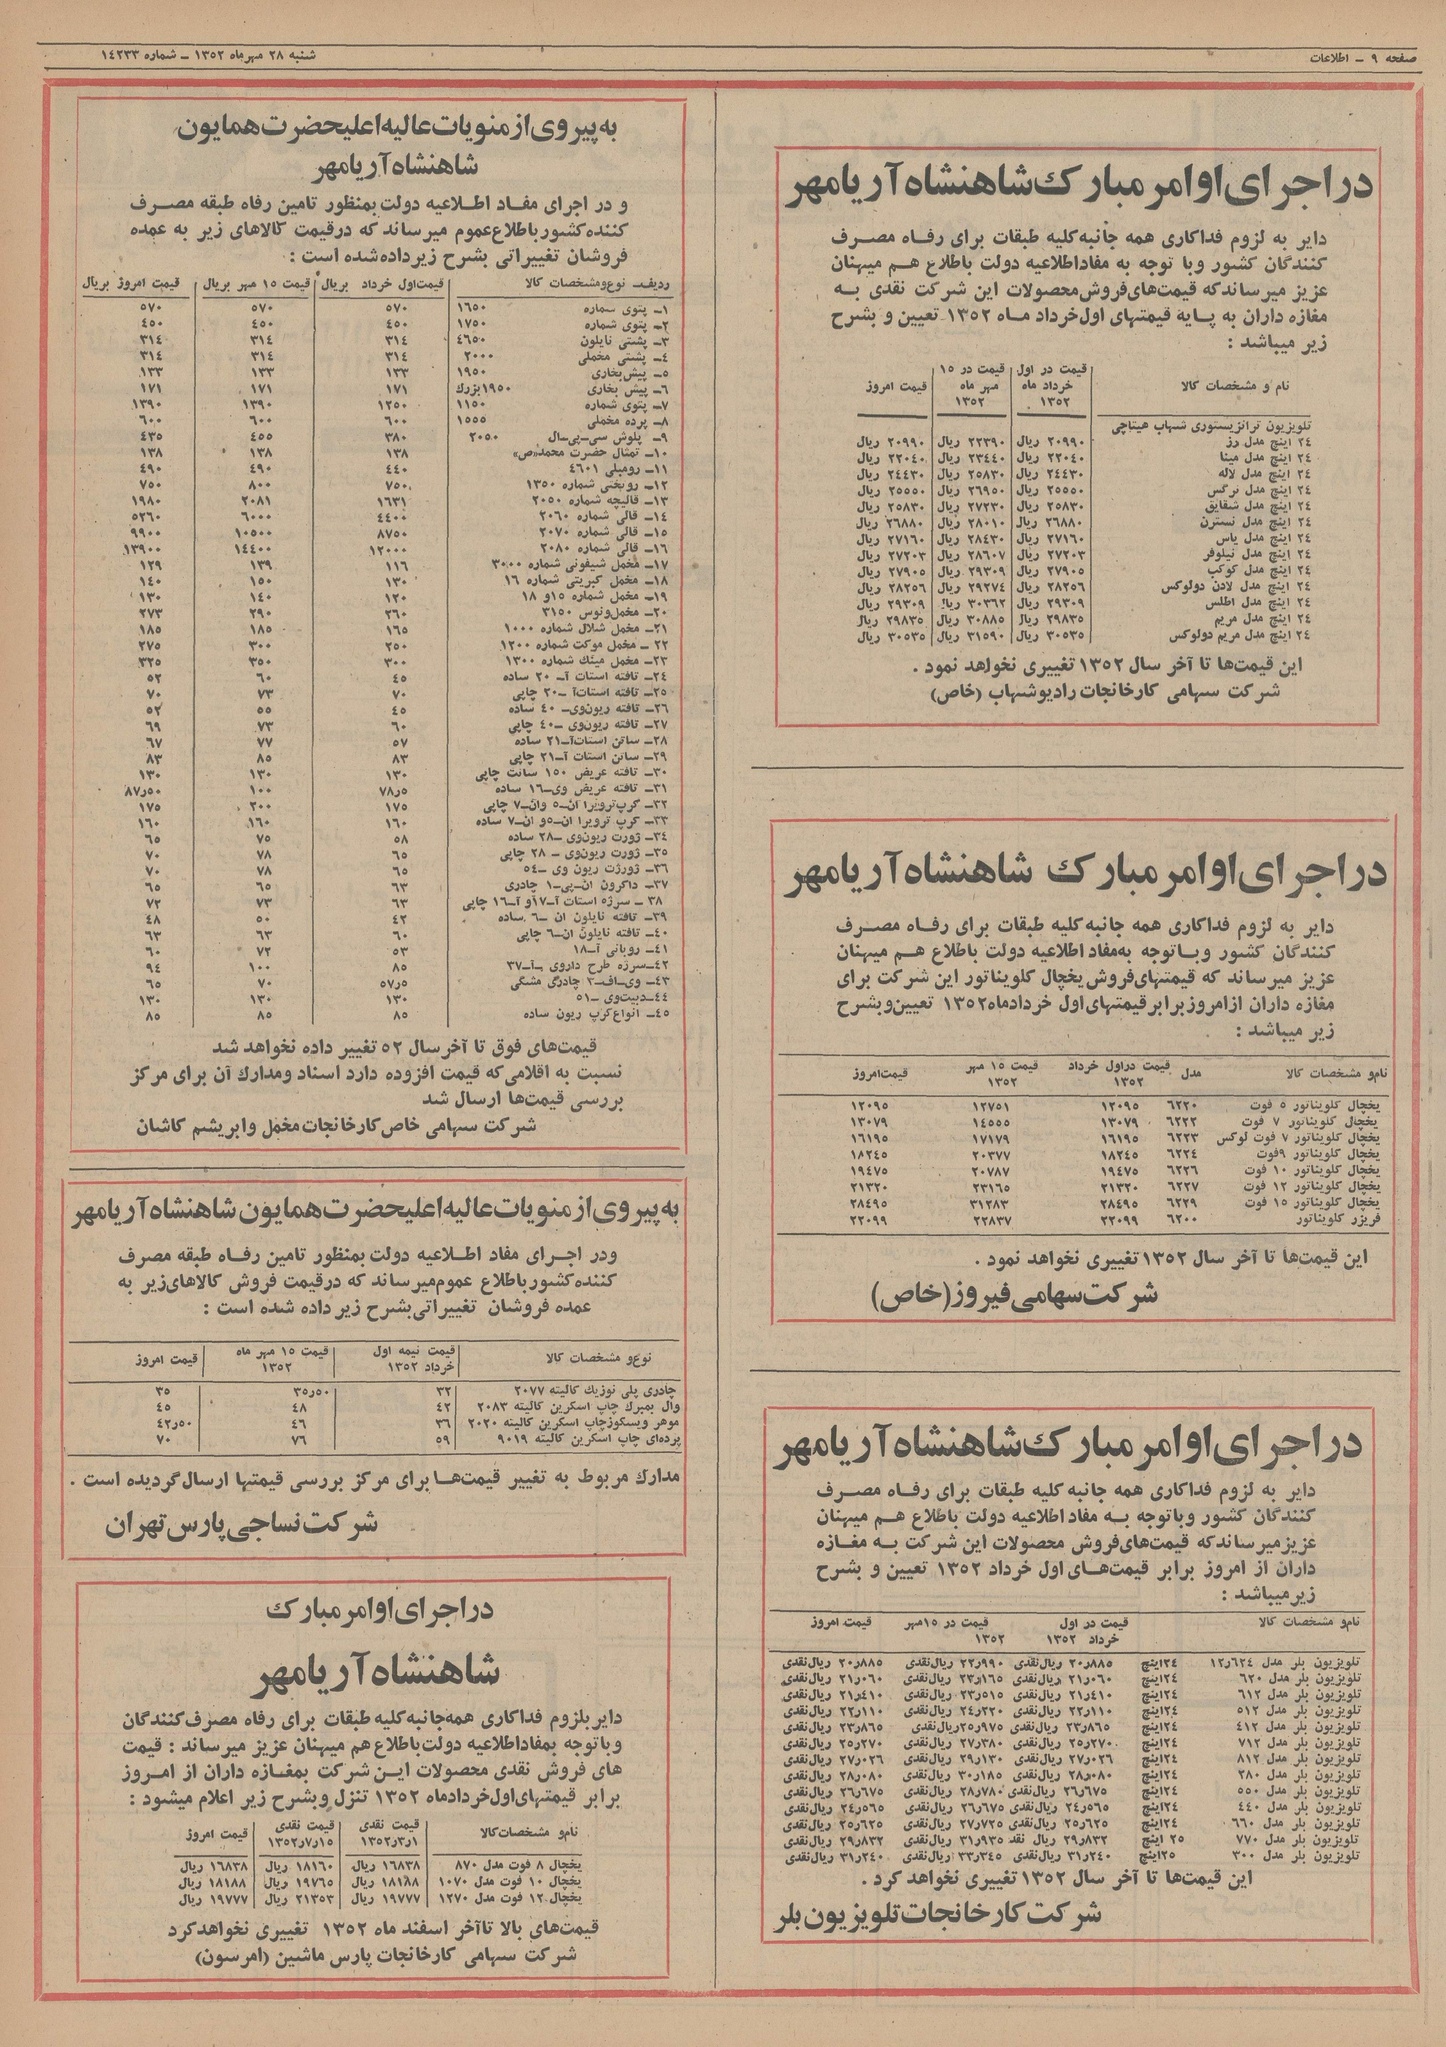 صفحه ۹ ــ اطلاعات
شنبه ۲۸ مهرماه ۱۳۵۲ ــ شماره ۱۴۲۳۳
در اجرای اوامر مبارک شاهنشاه آریامهر
دایر به لزوم فداکاری همه جانبه کلیه طبقات برای رفاه مصرف
کنندگان کشور وبا توجه به مفاد اطلاعیه دولت باطلاع هم میهنان
عزیز میرساند که قیمت‌های فروش محصولات این شرکت نقدی به
مغازه داران به پایه قیمتهای اول خرداد ماه ۱۳۵۲ تعیین و بشرح
زیر میباشد :
نام و مشخصات کالا قیمت در اول خرداد ماه ۱۳۵۲ قیمت در ۱۵ مهر ماه ۱۳۵۲ قیمت امروز
تلویزیون ترانزیستوری شهاب هیتاچی
۲۴ اینچ مدل رز ۲۰۹۹۰ ریال ۲۲۳۹۰ ریال ۲۰۹۹۰ ریال
۲۴ اینچ مدل مینا ۲۲۰۴۰ ریال ۲۳۴۴۰ ریال ۲۲۰۴۰ ریال
۲۴ اینچ مدل لاله ۲۴۴۳۰ ریال ۲۵۸۳۰ ریال ۲۴۴۳۰ ریال
۲۴ اینچ مدل نرگس ۲۵۵۵۰ ریال ۲۶۹۵۰ ریال ۲۵۵۵۰ ریال
۲۴ اینچ مدل شقایق ۲۵۸۳۰ ریال ۲۷۲۳۰ ریال ۲۵۸۳۰ ریال
۲۴ اینچ مدل نسترن ۲۶۸۸۰ ریال ۲۸۰۱۰ ریال ۲۶۸۸۰ ریال
۲۴ اینچ مدل یاس ۲۷۱۶۰ ریال ۲۸۴۳۰ ریال ۲۷۱۶۰ ریال
۲۴ اینچ مدل نیلوفر ۲۷۲۰۳ ریال ۲۸۶۰۷ ریال ۲۷۲۰۳ ریال
۲۴ اینچ مدل کوکب ۲۷۹۰۵ ریال ۲۹۳۰۹ ریال ۲۷۹۰۵ ریال
۲۴ اینچ مدل لادن دولوکس ۲۸۲۵۶ ریال ۲۹۲۷۴ ریال ۲۸۲۵۶ ریال
۲۴ اینچ مدل اطلس ۲۹۳۰۹ ریال ۳۰۳۶۲ ریال ۲۹۳۰۹ ریال
۲۴ اینچ مدل مریم ۲۹۸۳۵ ریال ۳۰۸۸۵ ریال ۲۹۸۳۵ ریال
۲۴ اینچ مدل مریم دولوکس ۳۰۵۳۵ ریال ۳۱۵۹۰ ریال ۳۰۵۳۵ ریال
این قیمت‌ها تا آخر سال ۱۳۵۲ تغییری نخواهد نمود .
شرکت سهامی کارخانجات رادیو شهاب (خاص)
در اجرای اوامر مبارک شاهنشاه آریامهر
دایر به لزوم فداکاری همه جانبه کلیه طبقات برای رفاه مصرف
کنندگان کشور وبا توجه به مفاد اطلاعیه دولت باطلاع هم میهنان
عزیز میرساند که قیمتهای فروش یخچال کلویناتور این شرکت برای
مغازه داران از امروز برابر قیمتهای اول خرداد ماه ۱۳۵۲ تعیین و بشرح
زیر میباشد :
نام و مشخصات کالا مدل قیمت در اول خرداد ۱۳۵۲ قیمت ۱۵ مهر ۱۳۵۲ قیمت امروز
یخچال کلویناتور ۵ فوت ۶۲۲۰ ۱۲۰۹۵ ۱۲۷۵۱ ۱۲۰۹۵
یخچال کلویناتور ۷ فوت ۶۲۲۲ ۱۳۰۷۹ ۱۴۵۵۵ ۱۳۰۷۹
یخچال کلویناتور ۷ فوت لوکس ۶۲۲۳ ۱۶۱۹۵ ۱۷۱۷۹ ۱۶۱۹۵
یخچال کلویناتور ۹ فوت ۶۲۲۴ ۱۸۲۴۵ ۲۰۳۷۷ ۱۸۲۴۵
یخچال کلویناتور ۱۰ فوت ۶۲۲۶ ۱۹۴۷۵ ۲۰۷۸۷ ۱۹۴۷۵
یخچال کلویناتور ۱۲ فوت ۶۲۲۷ ۲۱۳۲۰ ۲۳۱۶۵ ۲۱۳۲۰
یخچال کلویناتور ۱۵ فوت ۶۲۲۹ ۲۸۴۹۵ ۳۱۲۸۳ ۲۸۴۹۵
فریزر کلویناتور ۶۲۰۰ ۲۲۰۹۹ ۲۲۸۳۷ ۲۲۰۹۹
این قیمت‌ها تا آخر سال ۱۳۵۲ تغییری نخواهد نمود .
شرکت سهامی فیروز (خاص)
در اجرای اوامر مبارک شاهنشاه آریامهر
دایر به لزوم فداکاری همه جانبه کلیه طبقات برای رفاه مصرف
کنندگان کشور وبا توجه به مفاد اطلاعیه دولت باطلاع هم میهنان
عزیز میرساند که قیمت‌های فروش محصولات این شرکت به مغازه
داران از امروز برابر قیمت‌های اول خرداد ۱۳۵۲ تعیین و بشرح
زیر میباشد :
نام و مشخصات کالا قیمت در اول خرداد ۱۳۵۲ قیمت در ۱۵ مهر ۱۳۵۲ قیمت امروز
تلویزیون بلر مدل ۱۲٫۶۲۴ ۲۴ اینچ ۲۰٫۸۸۵ ریال نقدی ۲۲٫۹۹۰ ریال نقدی ۲۰٫۸۸۵ ریال نقدی
تلویزیون بلر مدل ۶۲۰ ۲۴ اینچ ۲۱٫۰۶۰ ریال نقدی ۲۳٫۱۶۵ ریال نقدی ۲۱٫۰۶۰ ریال نقدی
تلویزیون بلر مدل ۶۱۲ ۲۴ اینچ ۲۱٫۴۱۰ ریال نقدی ۲۳٫۵۱۵ ریال نقدی ۲۱٫۴۱۰ ریال نقدی
تلویزیون بلر مدل ۵۱۲ ۲۴ اینچ ۲۲٫۱۱۰ ریال نقدی ۲۴٫۲۲۰ ریال نقدی ۲۲٫۱۱۰ ریال نقدی
تلویزیون بلر مدل ۴۱۲ ۲۴ اینچ ۲۳٫۸۶۵ ریال نقدی ۲۵٫۹۷۵ ریال نقدی ۲۳٫۸۶۵ ریال نقدی
تلویزیون بلر مدل ۷۱۲ ۲۴ اینچ ۲۵٫۲۷۰ ریال نقدی ۲۷٫۳۸۰ ریال نقدی ۲۵٫۲۷۰ ریال نقدی
تلویزیون بلر مدل ۸۱۲ ۲۴ اینچ ۲۷٫۰۲۶ ریال نقدی ۲۹٫۱۳۰ ریال نقدی ۲۷٫۰۲۶ ریال نقدی
تلویزیون بلر مدل ۲۸۰ ۲۴ اینچ ۲۸٫۰۸۰ ریال نقدی ۳۰٫۱۸۵ ریال نقدی ۲۸٫۰۸۰ ریال نقدی
تلویزیون بلر مدل ۵۵۰ ۲۴ اینچ ۲۶٫۶۷۵ ریال نقدی ۲۸٫۷۸۰ ریال نقدی ۲۶٫۶۷۵ ریال نقدی
تلویزیون بلر مدل ۴۴۰ ۲۴ اینچ ۲۴٫۵۶۵ ریال نقدی ۲۶٫۶۷۵ ریال نقدی ۲۴٫۵۶۵ ریال نقدی
تلویزیون بلر مدل ۶۶۰ ۲۴ اینچ ۲۵٫۶۲۵ ریال نقدی ۲۷٫۷۲۵ ریال نقدی ۲۵٫۶۲۵ ریال نقدی
تلویزیون بلر مدل ۷۷۰ ۲۵ اینچ ۲۹٫۸۳۲ ریال نقد ۳۱٫۹۳۵ ریال نقدی ۲۹٫۸۳۲ ریال نقدی
تلویزیون بلر مدل ۳۰۰ ۲۵ اینچ ۳۱٫۲۴۰ ریال نقدی ۳۳٫۳۴۵ ریال نقدی ۳۱٫۲۴۰ ریال نقدی
این قیمت‌ها تا آخر سال ۱۳۵۲ تغییری نخواهد کرد .
شرکت کارخانجات تلویزیون بلر
به پیروی از منویات عالیه اعلیحضرت همایون
شاهنشاه آریامهر
و در اجرای مفاد اطلاعیه دولت بمنظور تامین رفاه طبقه مصرف
کننده کشور باطلاع عموم میرساند که در قیمت کالاهای زیر به عمده
فروشان تغییراتی بشرح زیر داده شده است :
ردیف ــ نوع و مشخصات کالا قیمت اول خرداد بریال قیمت ۱۵ مهر بریال قیمت امروز بریال
۱ــ پتوی شماره ۱۶۵۰ ۵۷۰ ۵۷۰ ۵۷۰
۲ــ پتوی شماره ۱۷۵۰ ۴۵۰ ۴۵۰ ۴۵۰
۳ــ پشتی نایلون ۴۶۵۰ ۳۱۴ ۳۱۴ ۳۱۴
۴ــ پشتی مخملی ۲۰۰۰ ۳۱۴ ۳۱۴ ۳۱۴
۵ــ پیش بخاری ۱۹۵۰ ۱۳۳ ۱۳۳ ۱۳۳
۶ــ پیش بخاری ۱۹۵۰ بزرگ ۱۷۱ ۱۷۱ ۱۷۱
۷ــ پتوی شماره ۱۱۵۰ ۱۲۵۰ ۱۳۹۰ ۱۳۹۰
۸ــ پرده مخملی ۱۵۵۵ ۶۰۰ ۶۰۰ ۶۰۰
۹ــ پلوش سی‌ــ‌پی‌ــ‌ال ۲۰۵۰ ۳۸۰ ۴۵۵ ۴۳۵
۱۰ــ تمثال حضرت محمد«ص» ۱۳۸ ۱۳۸ ۱۳۸
۱۱ــ رومبلی ۴۶۰۱ ۴۴۰ ۴۹۰ ۴۹۰
۱۲ــ روتختی شماره ۱۳۵۰ ۷۵۰ ۸۰۰ ۷۵۰
۱۳ــ قالیچه شماره ۲۰۵۰ ۱۶۳۱ ۲۰۸۱ ۱۹۸۰
۱۴ــ قالی شماره ۲۰۶۰ ۴۴۰۰ ۶۰۰۰ ۵۲۶۰
۱۵ــ قالی شماره ۲۰۷۰ ۸۷۵۰ ۱۰۵۰۰ ۹۹۰۰
۱۶ــ قالی شماره ۲۰۸۰ ۱۲۰۰۰ ۱۴۴۰۰ ۱۳۹۰۰
۱۷ــ مخمل شیفونی شماره ۳۰۰۰ ۱۱۶ ۱۳۹ ۱۲۹
۱۸ــ مخمل کبریتی شماره ۱۶ ۱۳۰ ۱۵۰ ۱۴۰
۱۹ــ مخمل شماره ۱۵و ۱۸ ۱۲۰ ۱۴۰ ۱۳۰
۲۰ــ مخمل ونوس ۳۱۵۰ ۲۶۰ ۲۹۰ ۲۷۳
۲۱ــ مخمل شلال شماره ۱۰۰۰ ۱۶۵ ۱۸۵ ۱۸۵
۲۲ ــ مخمل موکت شماره ۱۲۰۰ ۲۵۰ ۳۰۰ ۲۷۵
۲۳ــ مخمل مینک شماره ۱۳۰۰ ۳۰۰ ۳۵۰ ۳۲۵
۲۴ــ تافته استات آــ ۲۰ ساده ۴۵ ۶۰ ۵۲
۲۵ــ تافته استات آــ ۲۰ چاپی ۷۰ ۷۳ ۷۰
۲۶ــ تافته ریون‌وی‌ــ ۴۰ ساده ۴۵ ۵۵ ۵۲
۲۷ــ تافته ریون‌وی ــ۴۰ چاپی ۶۰ ۷۳ ۶۹
۲۸ــ ساتن استات آــ۲۱ ساده ۵۷ ۷۷ ۶۷
۲۹ــ ساتن استات آــ۲۱ چاپی ۸۳ ۸۵ ۸۳
۳۰ــ تافته عریض ۱۵۰ سانت چاپی ۱۳۰ ۱۳۰ ۱۳۰
۳۱ــ تافته عریض وی‌ــ۱۶ ساده ۷۸٫۵ ۱۰۰ ۸۷٫۵۰
۳۲ــ کرپ ترویرا ان‌ــ۵ وان‌ــ۷ چاپی ۱۷۵ ۲۰۰ ۱۷۵
۳۳ــ کرپ ترویرا ان‌ــ۵و ان‌ــ۷ ساده ۱۶۰ ۱۶۰ ۱۶۰
۳۴ــ ژورت ریون‌وی ــ۲۸ ساده ۵۸ ۷۵ ۶۵
۳۵ــ ژورت ریون‌وی ــ ۲۸ چاپی ۶۵ ۷۸ ۷۰
۳۶ــ ژورژت ریون وی ــ۵۴ ۶۵ ۷۸ ۷۰
۳۷ــ داکرون ان‌ــ‌پی‌ــ۱ چادری ۶۳ ۶۵ ۶۵
۳۸ ــ سرژه استات آــ۱۷و آــ۱۶ چاپی ۶۳ ۷۳ ۷۲
۳۹ــ تافته نایلون ان ــ۶ ساده ۴۲ ۵۰ ۴۸
۴۰ــ تافته نایلون ان‌ــ۶ چاپی ۶۰ ۶۳ ۶۳
۴۱ــ روبانی آــ۱۸ ۵۳ ۷۲ ۶۰
۴۲ــ سرژه طرح داروی ــآــ۳۷ ۸۵ ۱۰۰ ۹۴
۴۳ــ وی‌ــ‌اف‌ــ۳ چادری مشکی ۵۷٫۵ ۷۰ ۶۵
۴۴ــ دبیت‌وی ــ۵۱ ۱۳۰ ۱۳۰ ۱۳۰
۴۵ــ انواع کرپ ریون ساده ۸۵ ۸۵ ۸۵
قیمت‌های فوق تا آخر سال ۵۲ تغییر داده نخواهد شد
نسبت به اقلامی که قیمت افزوده دارد اسناد ومدارک آن برای مرکز
بررسی قیمت‌ها ارسال شد
شرکت سهامی خاص کارخانجات مخمل و ابریشم کاشان
به پیروی از منویات عالیه اعلیحضرت همایون شاهنشاه آریامهر
ودر اجرای مفاد اطلاعیه دولت بمنظور تامین رفاه طبقه مصرف
کننده کشور باطلاع عموم میرساند که در قیمت فروش کالاهای زیر به
عمده فروشان تغییراتی بشرح زیر داده شده است :
نوع و مشخصات کالا قیمت نیمه اول خرداد ۱۳۵۲ قیمت ۱۵ مهر ماه ۱۳۵۲ قیمت امروز
چادری پلی نوزیک کالیته ۲۰۷۷ ۳۲ ۳۵٫۵۰ ۳۵
وال بمبرک چاپ اسکرین کالیته ۲۰۸۳ ۴۲ ۴۸ ۴۵
موهر ویسکوز چاپ اسکرین کالیته ۲۰۲۰ ۳۶ ۴۶ ۴۲٫۵۰
پرده‌ای چاپ اسکرین کالیته ۹۰۱۹ ۵۹ ۷۶ ۷۰
مدارک مربوط به تغییر قیمت‌ها برای مرکز بررسی قیمتها ارسال گردیده است .
شرکت نساجی پارس تهران
در اجرای اوامر مبارک
شاهنشاه آریامهر
دایر بلزوم فداکاری همه جانبه کلیه طبقات برای رفاه مصرف کنندگان
و با توجه بمفاد اطلاعیه دولت باطلاع هم میهنان عزیز میرساند : قیمت
های فروش نقدی محصولات این شرکت بمغازه داران از امروز
برابر قیمتهای اول خرداد ماه ۱۳۵۲ تنزل و بشرح زیر اعلام میشود :
نام و مشخصات کالا قیمت نقدی ۱٫۳٫۱۳۵۲ قیمت نقدی ۱۵٫۷٫۱۳۵۲ قیمت امروز
یخچال ۸ فوت مدل ۸۷۰ ۱۶۸۳۸ ریال ۱۸۱۶۰ ریال ۱۶۸۳۸ ریال
یخچال ۱۰ فوت مدل ۱۰۷۰ ۱۸۱۸۸ ریال ۱۹۷۶۵ ریال ۱۸۱۸۸ ریال
یخچال ۱۲ فوت مدل ۱۲۷۰ ۱۹۷۷۷ ریال ۲۱۳۵۳ ریال ۱۹۷۷۷ ریال
قیمت‌های بالا تا آخر اسفند ماه ۱۳۵۲ تغییری نخواهد کرد
شرکت سهامی کارخانجات پارس ماشین (امرسون)